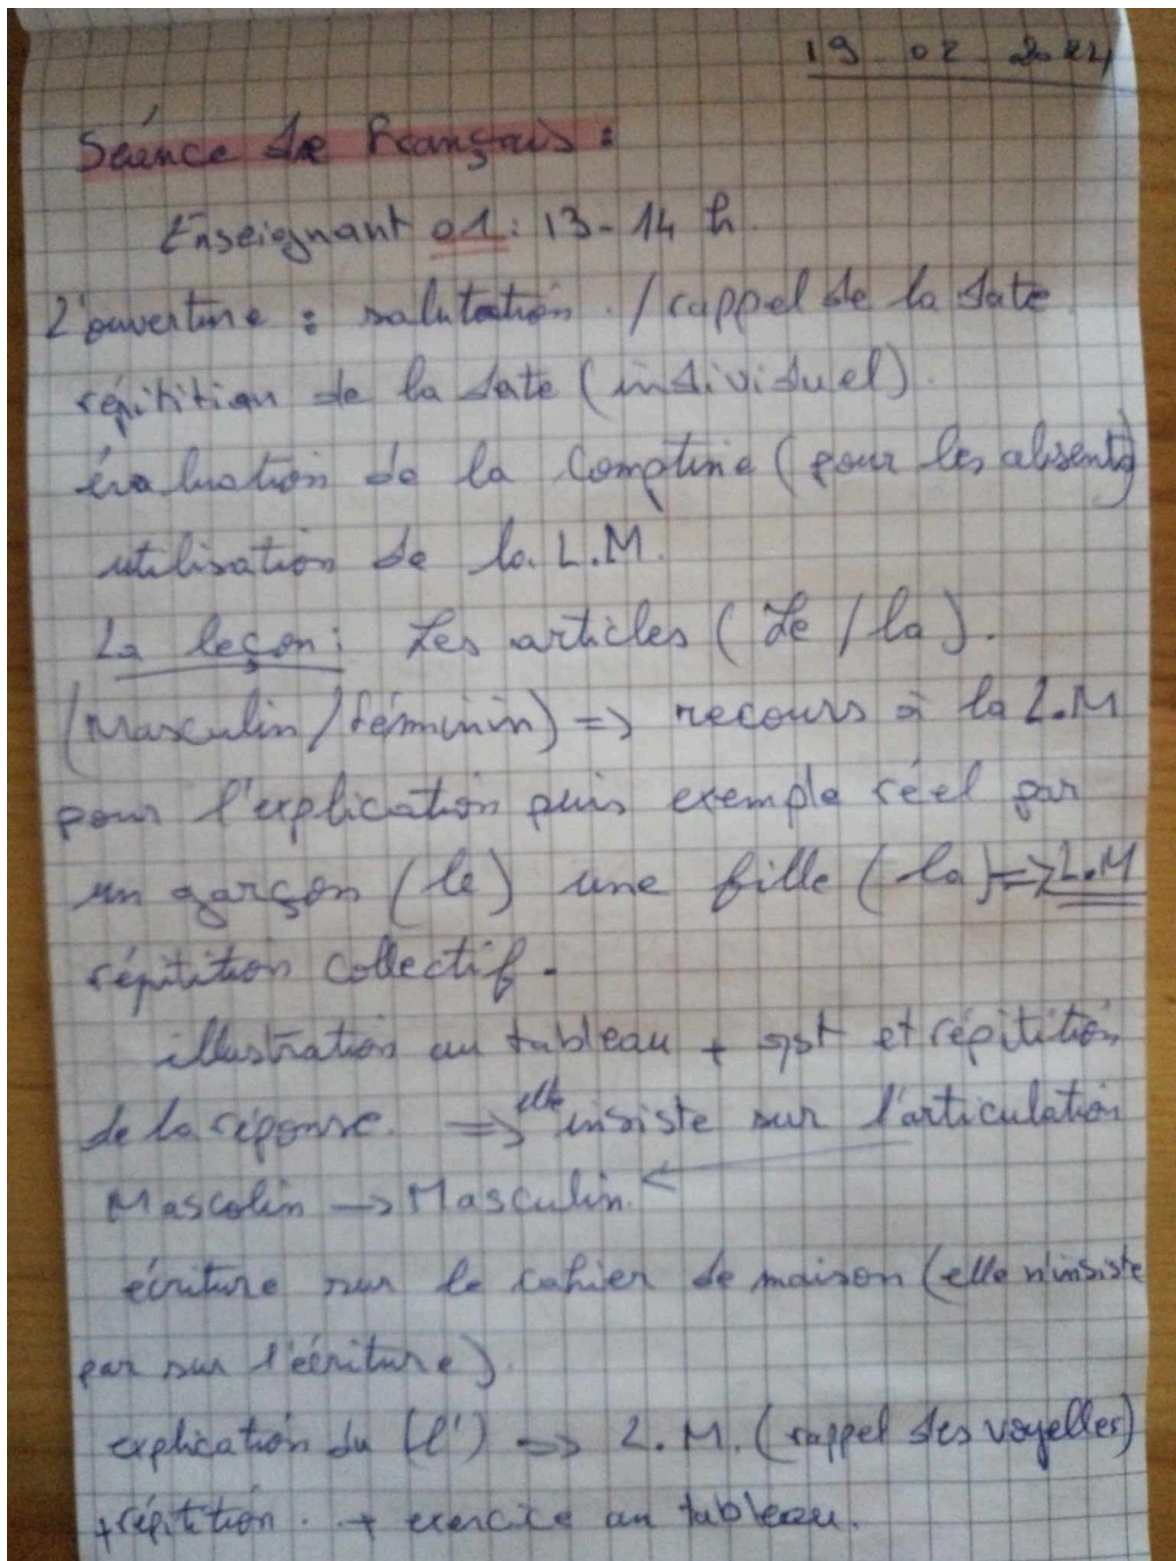 19 02 2024
Séance de Français :
Enseignant 01 : 13 - 14 h.
L'ouverture : salutation. / rappel de la date
répitition de la date (individuel).
évaluation de la comptine (pour les absents)
utilisation de la L.M.
La leçon : Les articles (Le / la).
(Masculin / féminin) => recours à la L.M
pour l'explication puis exemple réel par
un garçon (le) une fille (la) => L.M
répitition collectif.
illustration au tableau + qst et répitition
de la réponse. => elle insiste sur l'articulation
Mascolin -> Masculin.
écriture sur le cahier de maison (elle n'insiste
pas sur l'écriture).
explication du (l') => L.M. (rappel des voyelles)
+ répitition. + exercice au tableau.